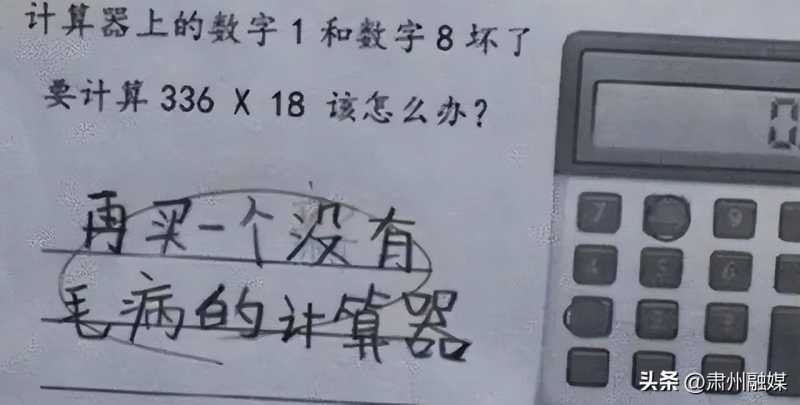 计算器上的数字1和数字8坏了
要计算336 X 18 该怎么办?
再买一个没有
毛病的计算器
0
7
9
4 5 6
2 3
头条 @肃州融媒